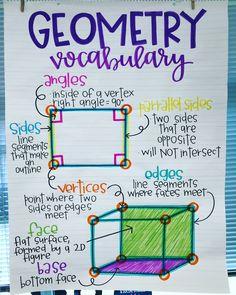 GEOMETRY
vocabulary
angles
inside of a vertex
right angle = 90°
parralel sides
two sides
that are
opposite
will NOT intersect
sides
line
segments
that make
an
outline
vertices
point where two
sides or edges
meet
edges
line segments
where faces meet
face
flat surface,
formed by a 2D
figure
base
bottom face